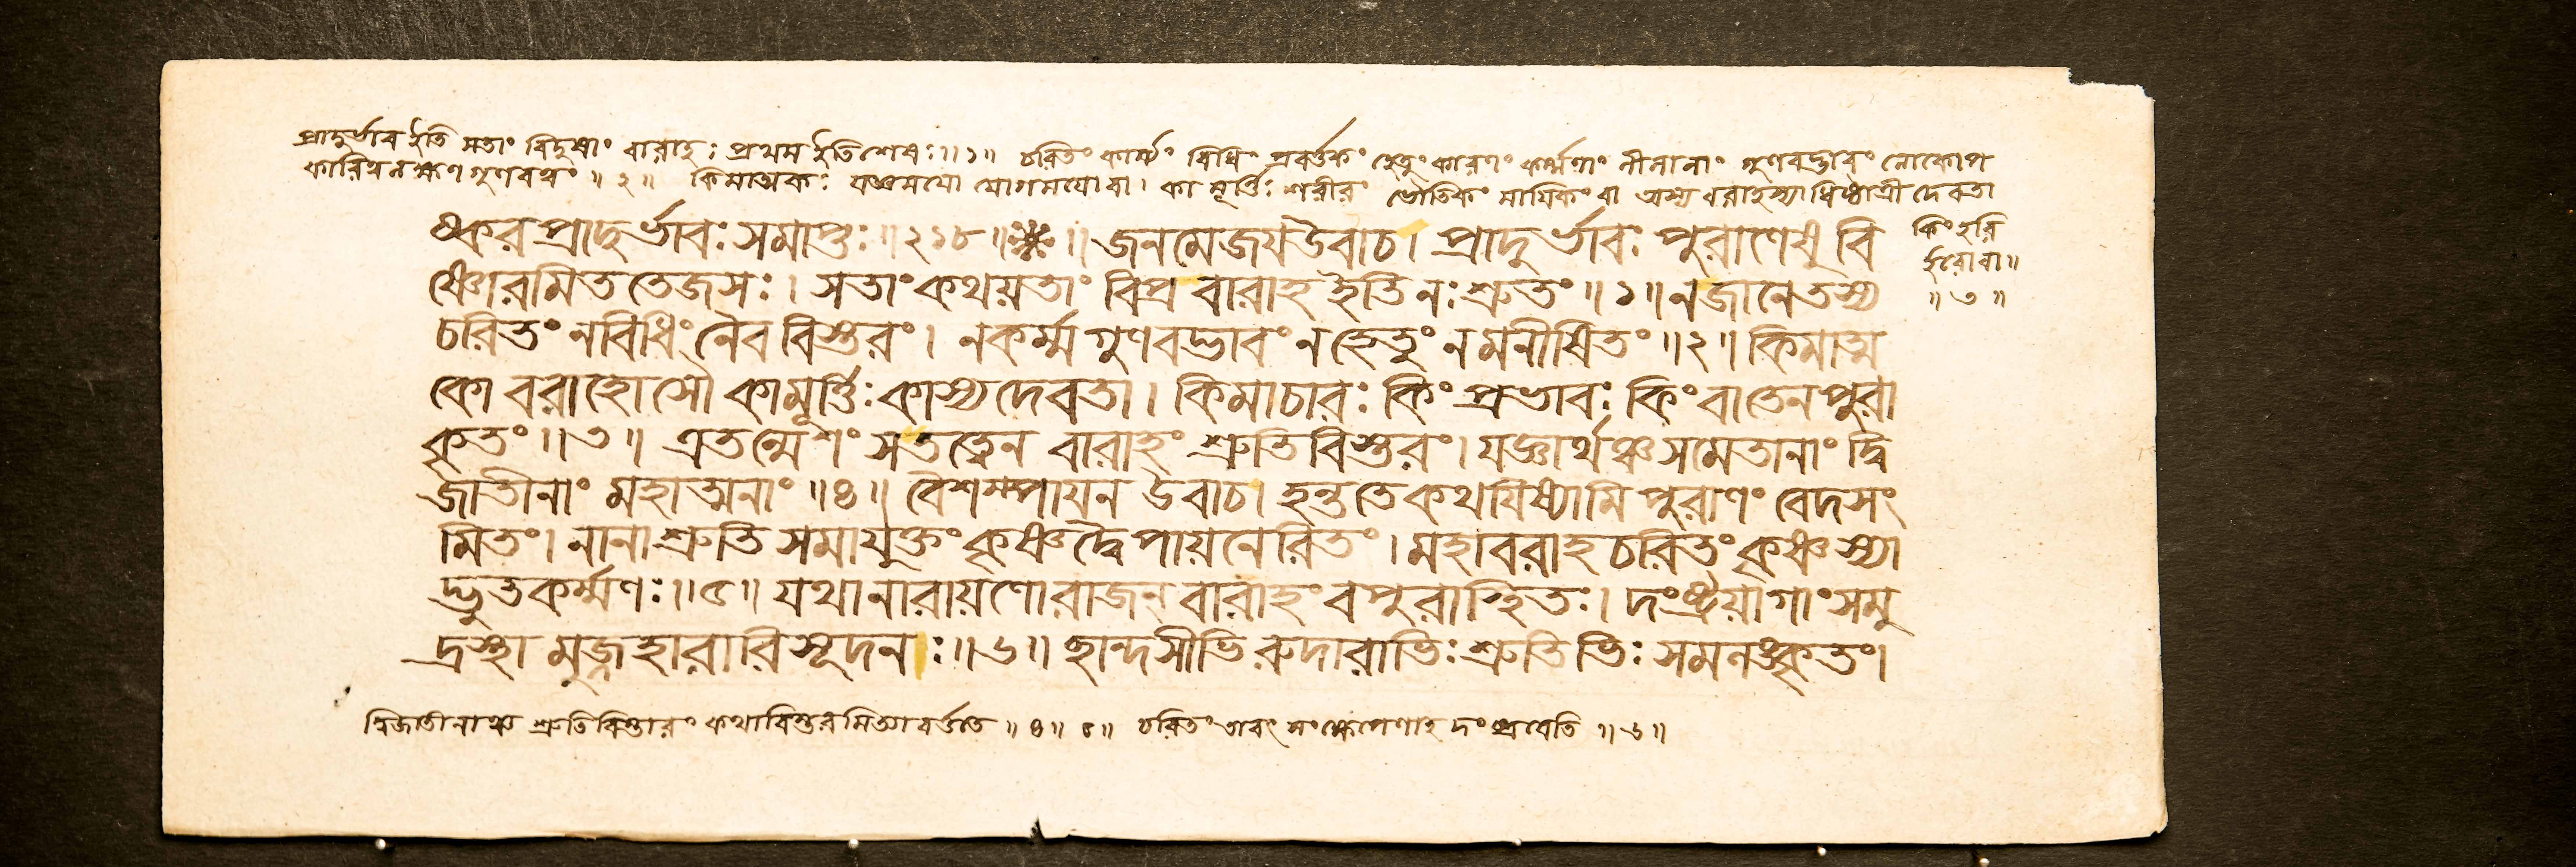 প্রাদুর্ভাব ইতি সতাং বিদুষাং বারাহঃ প্রথম ইতিশেষঃ॥১॥ চরিতং কার্য্যং বিধিং প্রবর্ত্তকং হেতুং কারণং কর্ম্মণাং লীলানাং গুণবদ্ভাবং লোকোপ
কারিত্বলক্ষণগুণবত্ত্বং॥২॥ কিমাত্মকঃ যজ্ঞময়ো যোগময়োবা। কা মূর্ত্তিঃ শরীরং ভৌতিকং মায়িকং বা অস্য বরাহস্যাধিষ্ঠাত্রী দেবতা
কিং হরি
র্হরোবা॥
॥৩॥
ষ্করপ্রাদুর্ভাবঃ সমাপ্তঃ॥২১৮॥ ॥ জনমেজয়উবাচ। প্রাদুর্ভাবঃ পুরাণেষু বি
ষ্ণোরমিততেজসঃ। সতাং কথয়তাং বিপ্র বারাহ ইতি নঃ শ্রুতং॥১॥ ন জানে তস্য
চরিতং ন বিধিং নৈব বিস্তরং। ন কর্ম্মগুণবদ্ভাবং ন হেতুং ন মনীষিতং॥২॥ কিমাত্ম
কো বরাহোসৌ কা মূর্ত্তিঃ কাস্য দেবতা। কিমাচারঃ কিং প্রভাবঃ কিং বা তেন পুরা
কৃতং॥৩॥ এতন্মে শংস তত্ত্বেন বারাহং শ্রুতিবিস্তরং। যজ্ঞার্থঞ্চ সমেতানাং দ্বি
জাতীনাং মহাত্মনাং॥৪॥ বৈশম্পায়ন উবাচ। হন্ত তে কথয়িষ্যামি পুরাণং বেদসং
মিতং। নানাশ্রুতিসমাযুক্তং কৃষ্ণদ্বৈপায়নেরিতং। মহাবরাহচরিতং কৃষ্ণস্যা
দ্ভুতকর্ম্মণঃ॥৫॥ যথা নারায়ণো রাজন্ বারাহং বপুরাস্থিতঃ। দংষ্ট্রয়া গাং সমু
দ্রস্থামুজ্জহারারিসূদনঃ॥৬॥ ছান্দসীভিরুদারাভিঃ শ্রুতিভিঃ সমলঙ্কৃতং।
দ্বিজাতীনাঞ্চ শ্রুতিবিস্তারং কথাবিস্তরমিত্যাবর্ত্ততে॥৪॥৫॥ চরিতং তাবৎ সংক্ষেপেণাহ দংষ্ট্রয়েতি॥৬॥